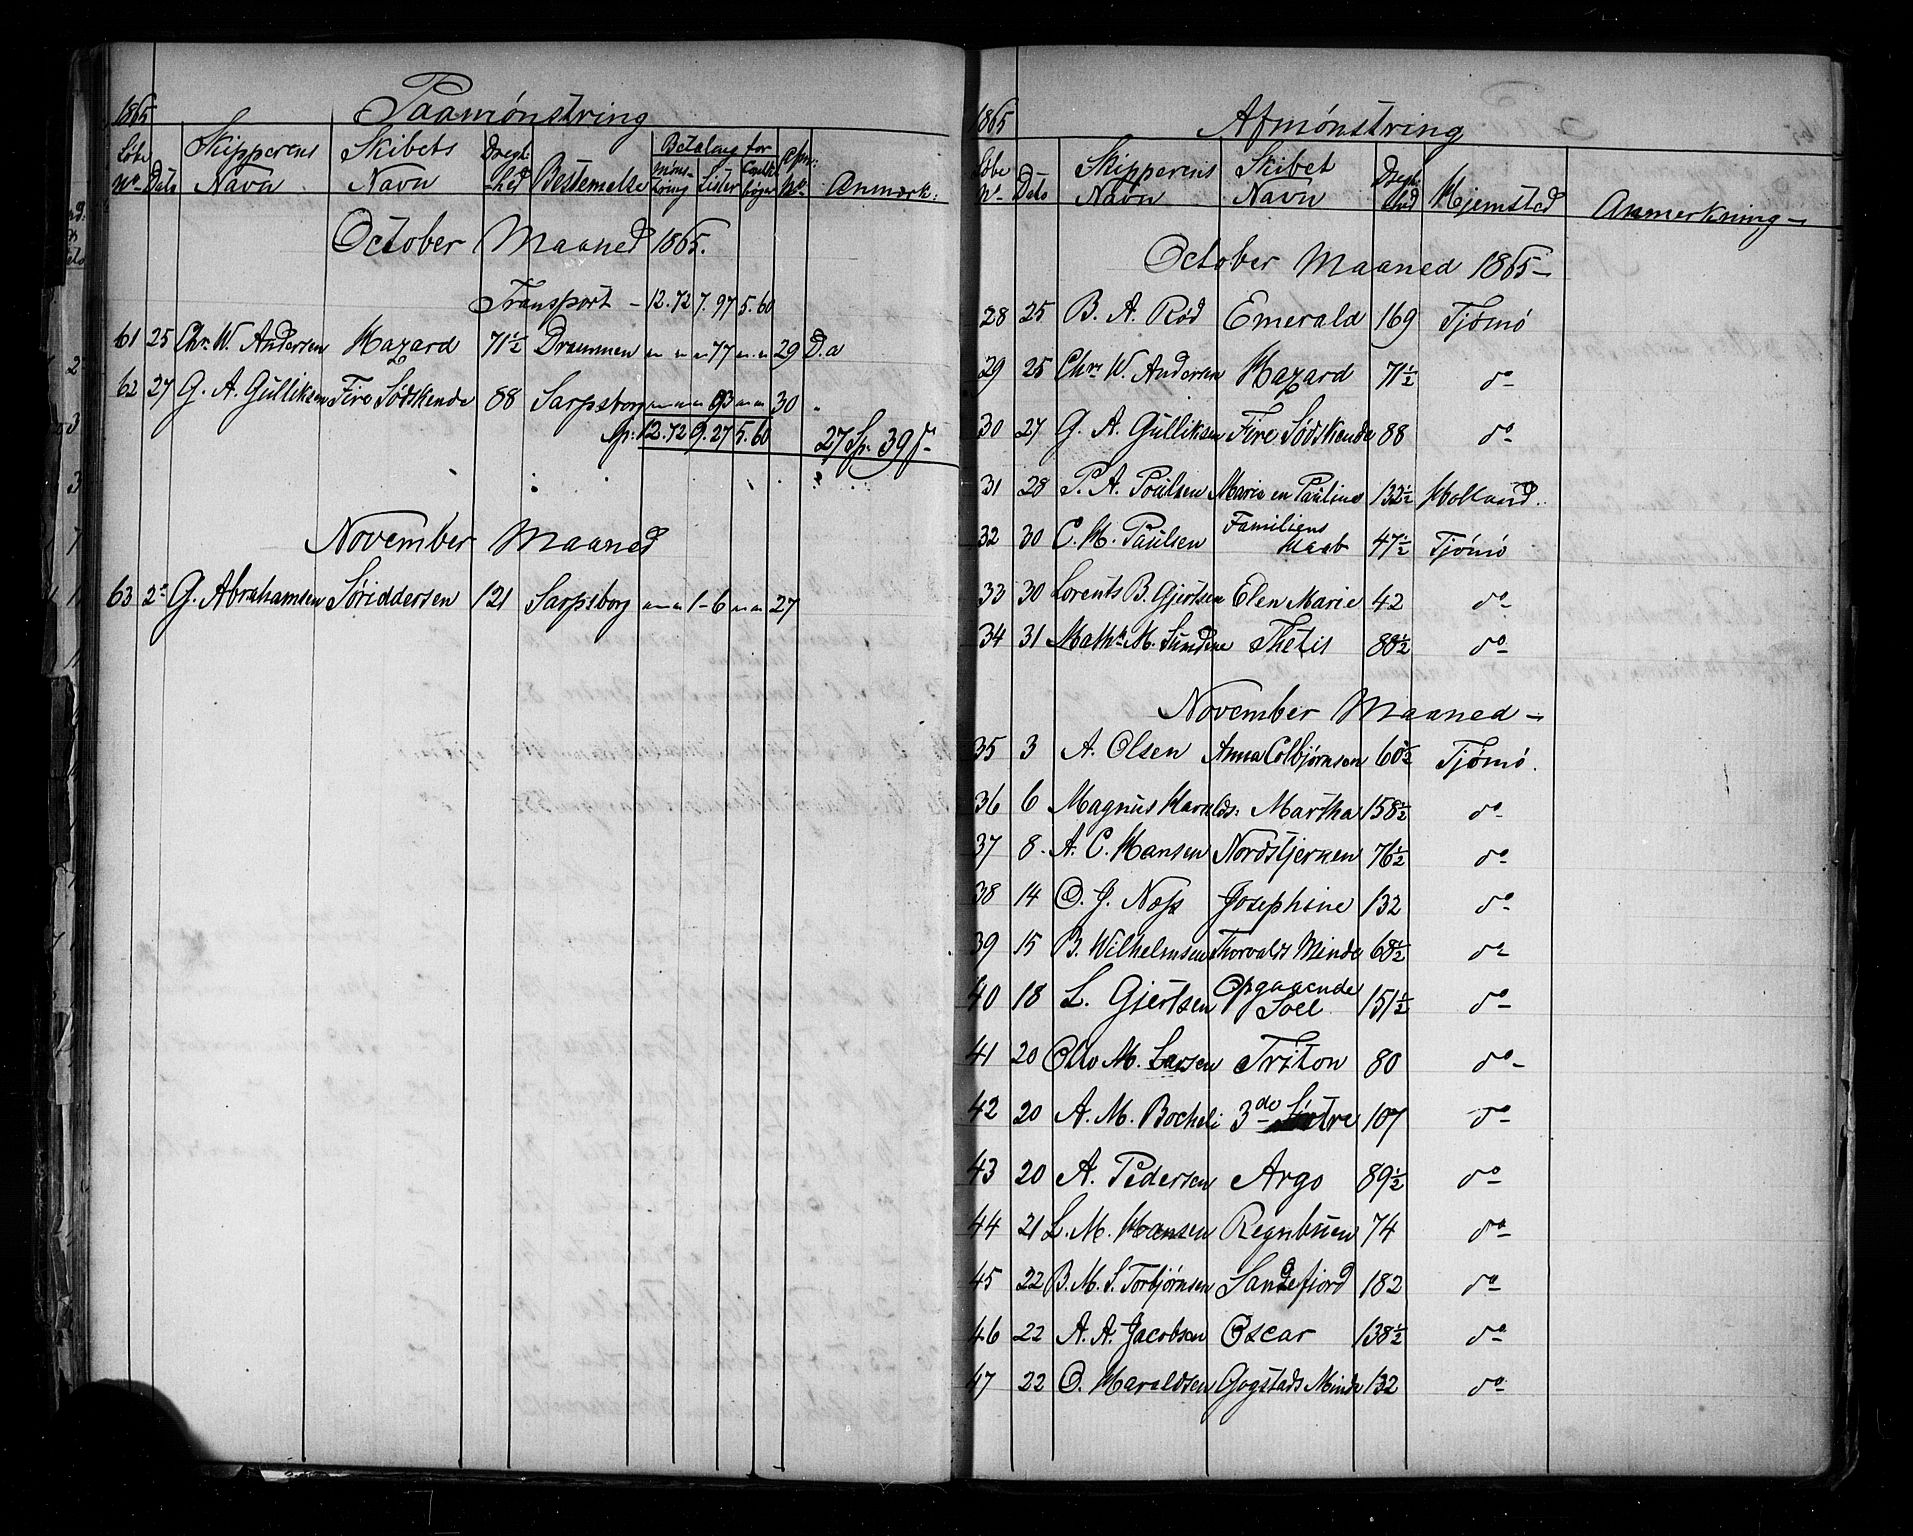 1865 Paamønstring
Løbe No. Dato Skipperens Navn Skibets Navn Drægt-hed Bestemelse Betaling for Mønstring Lister Anmærk:
October Maaned 1865.
Transport - 12.72 7.97 5.60
61 25 Chr. W. Andersen Hazard 71½ Drammen " " " 77 " " 29 D.a
62 27 G. A. Gülliksen Fire Sødskende 88 Sarpsborg " " " 93 " " 30 "
Sp: 12.72 9.27 5.60 27 Sp. 39 β -
November Maaned
63 2 G. Abrahamsen Søriddersen 121 Sarpsborg " " " 1-6 " " 27
1865 Afmønstring
Løbe No Dato Skipperens Navn Skibet Navn Drægt-hed Hjemsted Anmerkning -
October Maaned 1865 -
28 25 B. A. Rød Emerald 169 Tjømø
29 25 Chr. W. Andersen Hazard 71½ do
30 27 G. A. Gülliksen Fire Sødskende 88 do
31 28 P. A. Poülsen Marie en Paüline 132½ Holland.
32 30 C. H. Paülsen Familiens Haab 47½ Tjømø
33 30 Lorents B. Gjertsen Elen Marie 42 do
34 31 Math. M. Sündene Thetis 88½ do
November Maaned -
35 3 A. Olsen Anna Colbjørnsen 60½ Tjømø.
36 6 Magnüs Haralds: Martha 158½ do
37 8 A. C. Hansen Nordstjernen 76½ do
38 14 O. J. Næss Josephine 132 do
39 15 B. Wilhelmsen Thorvalds Minde 68½ do
40 18 L. Gjertsen Opgaaende Soel 151½ do
41 20 Otto M. Larsen Triton 80 do
42 20 A. M. Bocheli 3de Søstre 107 do
43 20 A. Pedersen Argo 89½ do
44 21 L. M. Hansen Regnbüen 74 do
45 22 B. M. S. Torbjørnsen Sandefjord 182 do
46 22 A. A. Jacobsen Oscar 138½ do
47 22 O. Haraldsen Gogstads Minde 132 do